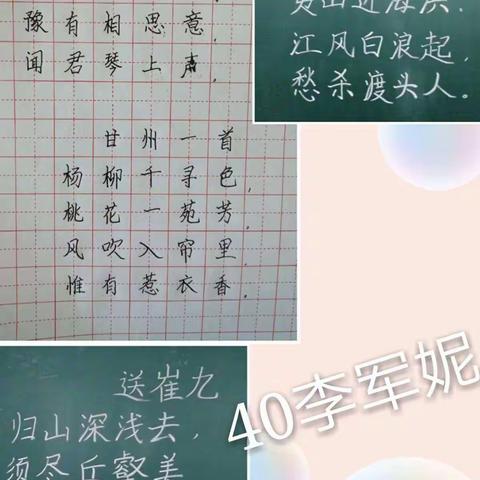 豫有相思意，
闻君琴上声，
甘州一首
杨柳千寻色，
桃花一苑芳，
风吹入帘里，
惟有惹衣香。
江风白浪起，
愁杀渡头人。
送崔九
归山深浅去，
须尽丘壑美
40李军妮